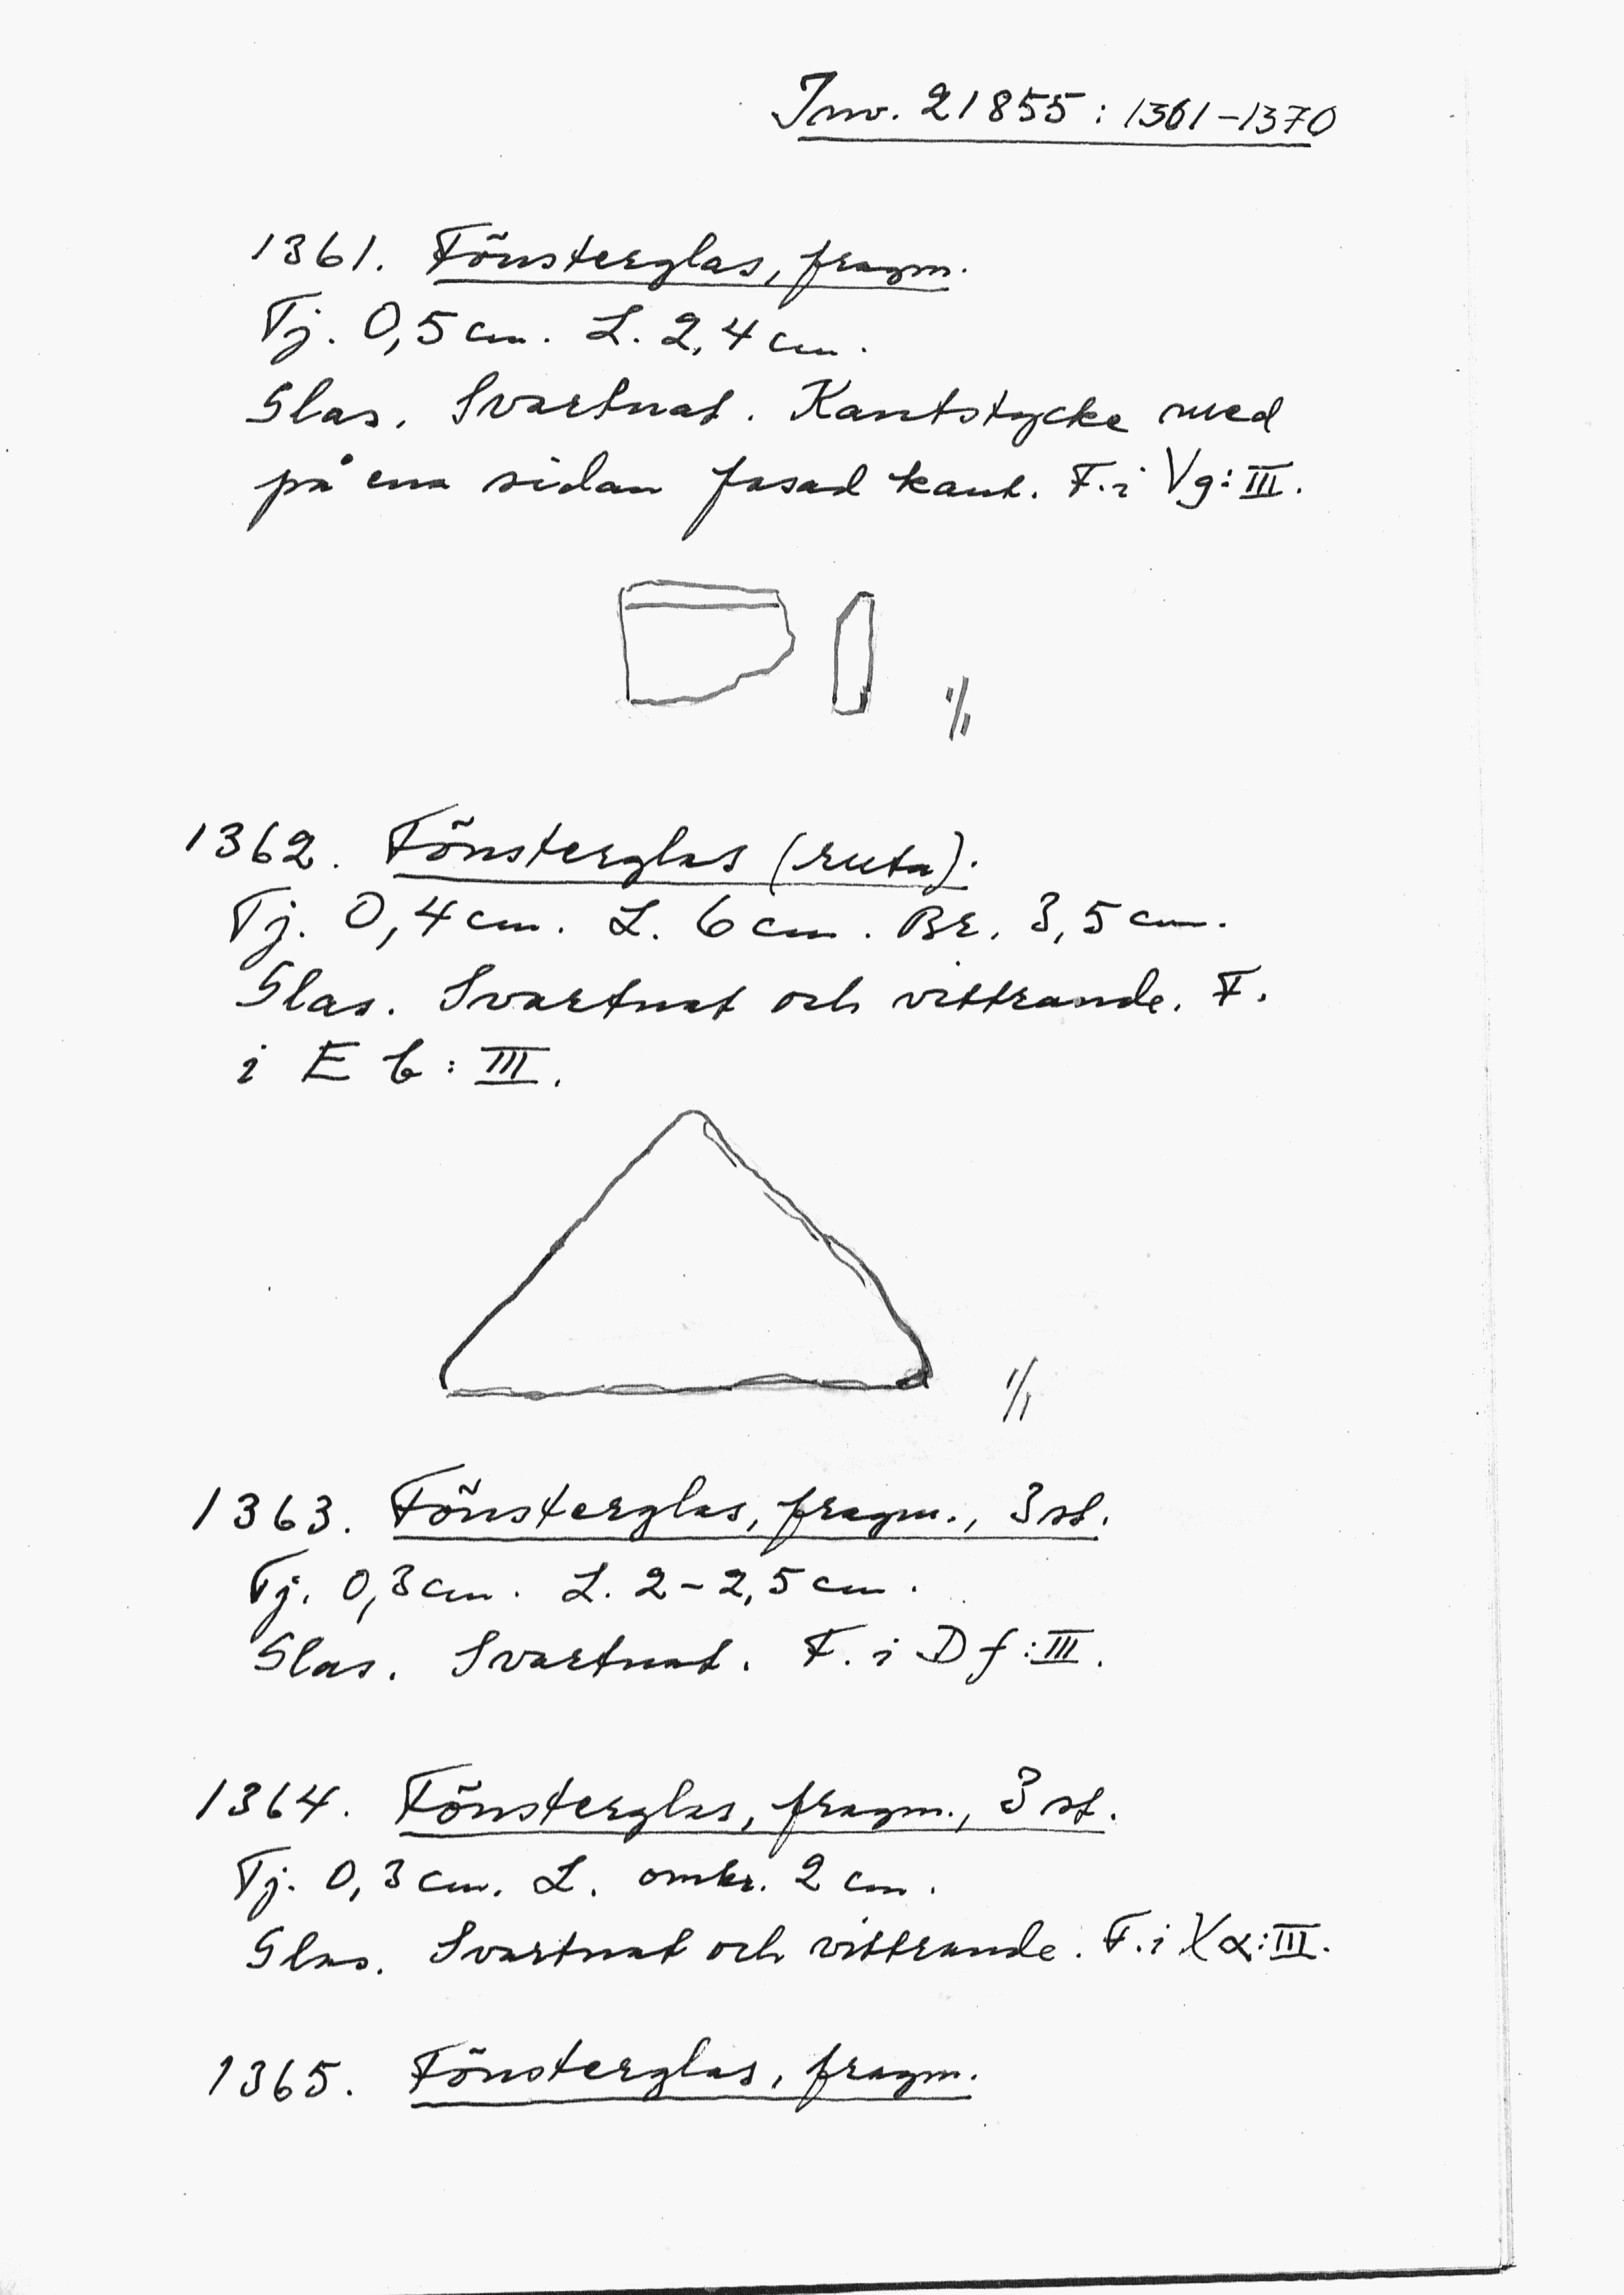 Inv. 21855: 1361-1370
1361. Fönsterglas, fragm.
Tj. 0,5 cm. L. 2,4 cm.
Glas. Svartnat. Kantstycke med
på ena sidan fasad kant. F. i Vg: III.
1/1
1362. Fönsterglas (ruta).
Tj. 0,4 cm. L. 6 cm. Br. 3,5 cm.
Glas. Svartnat och vittrande. F.
i E b: III.
1/1
1363. Fönsterglas, fragm., 3 st.
Tj. 0,3 cm. L. 2-2,5 cm.
Glas. Svartnat. F. i D f: III.
1364. Fönsterglas, fragm., 3 st.
Tj. 0,3 cm. L. omkr. 2 cm.
Glas. Svartnat och vittrande. F. i X α: III.
1365. Fönsterglas, fragm.